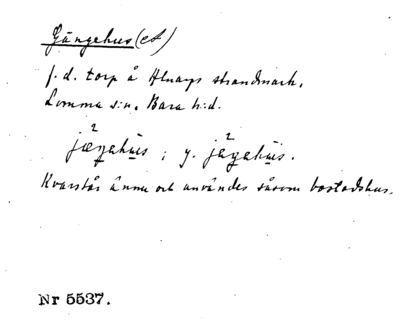 Gängehus (et)
f. d. torp å Alnarps strandmark.
Lomma s:n. Bara h:d.
Kvarstår ännu och användes såsom bostadshus.
Nr 5537.